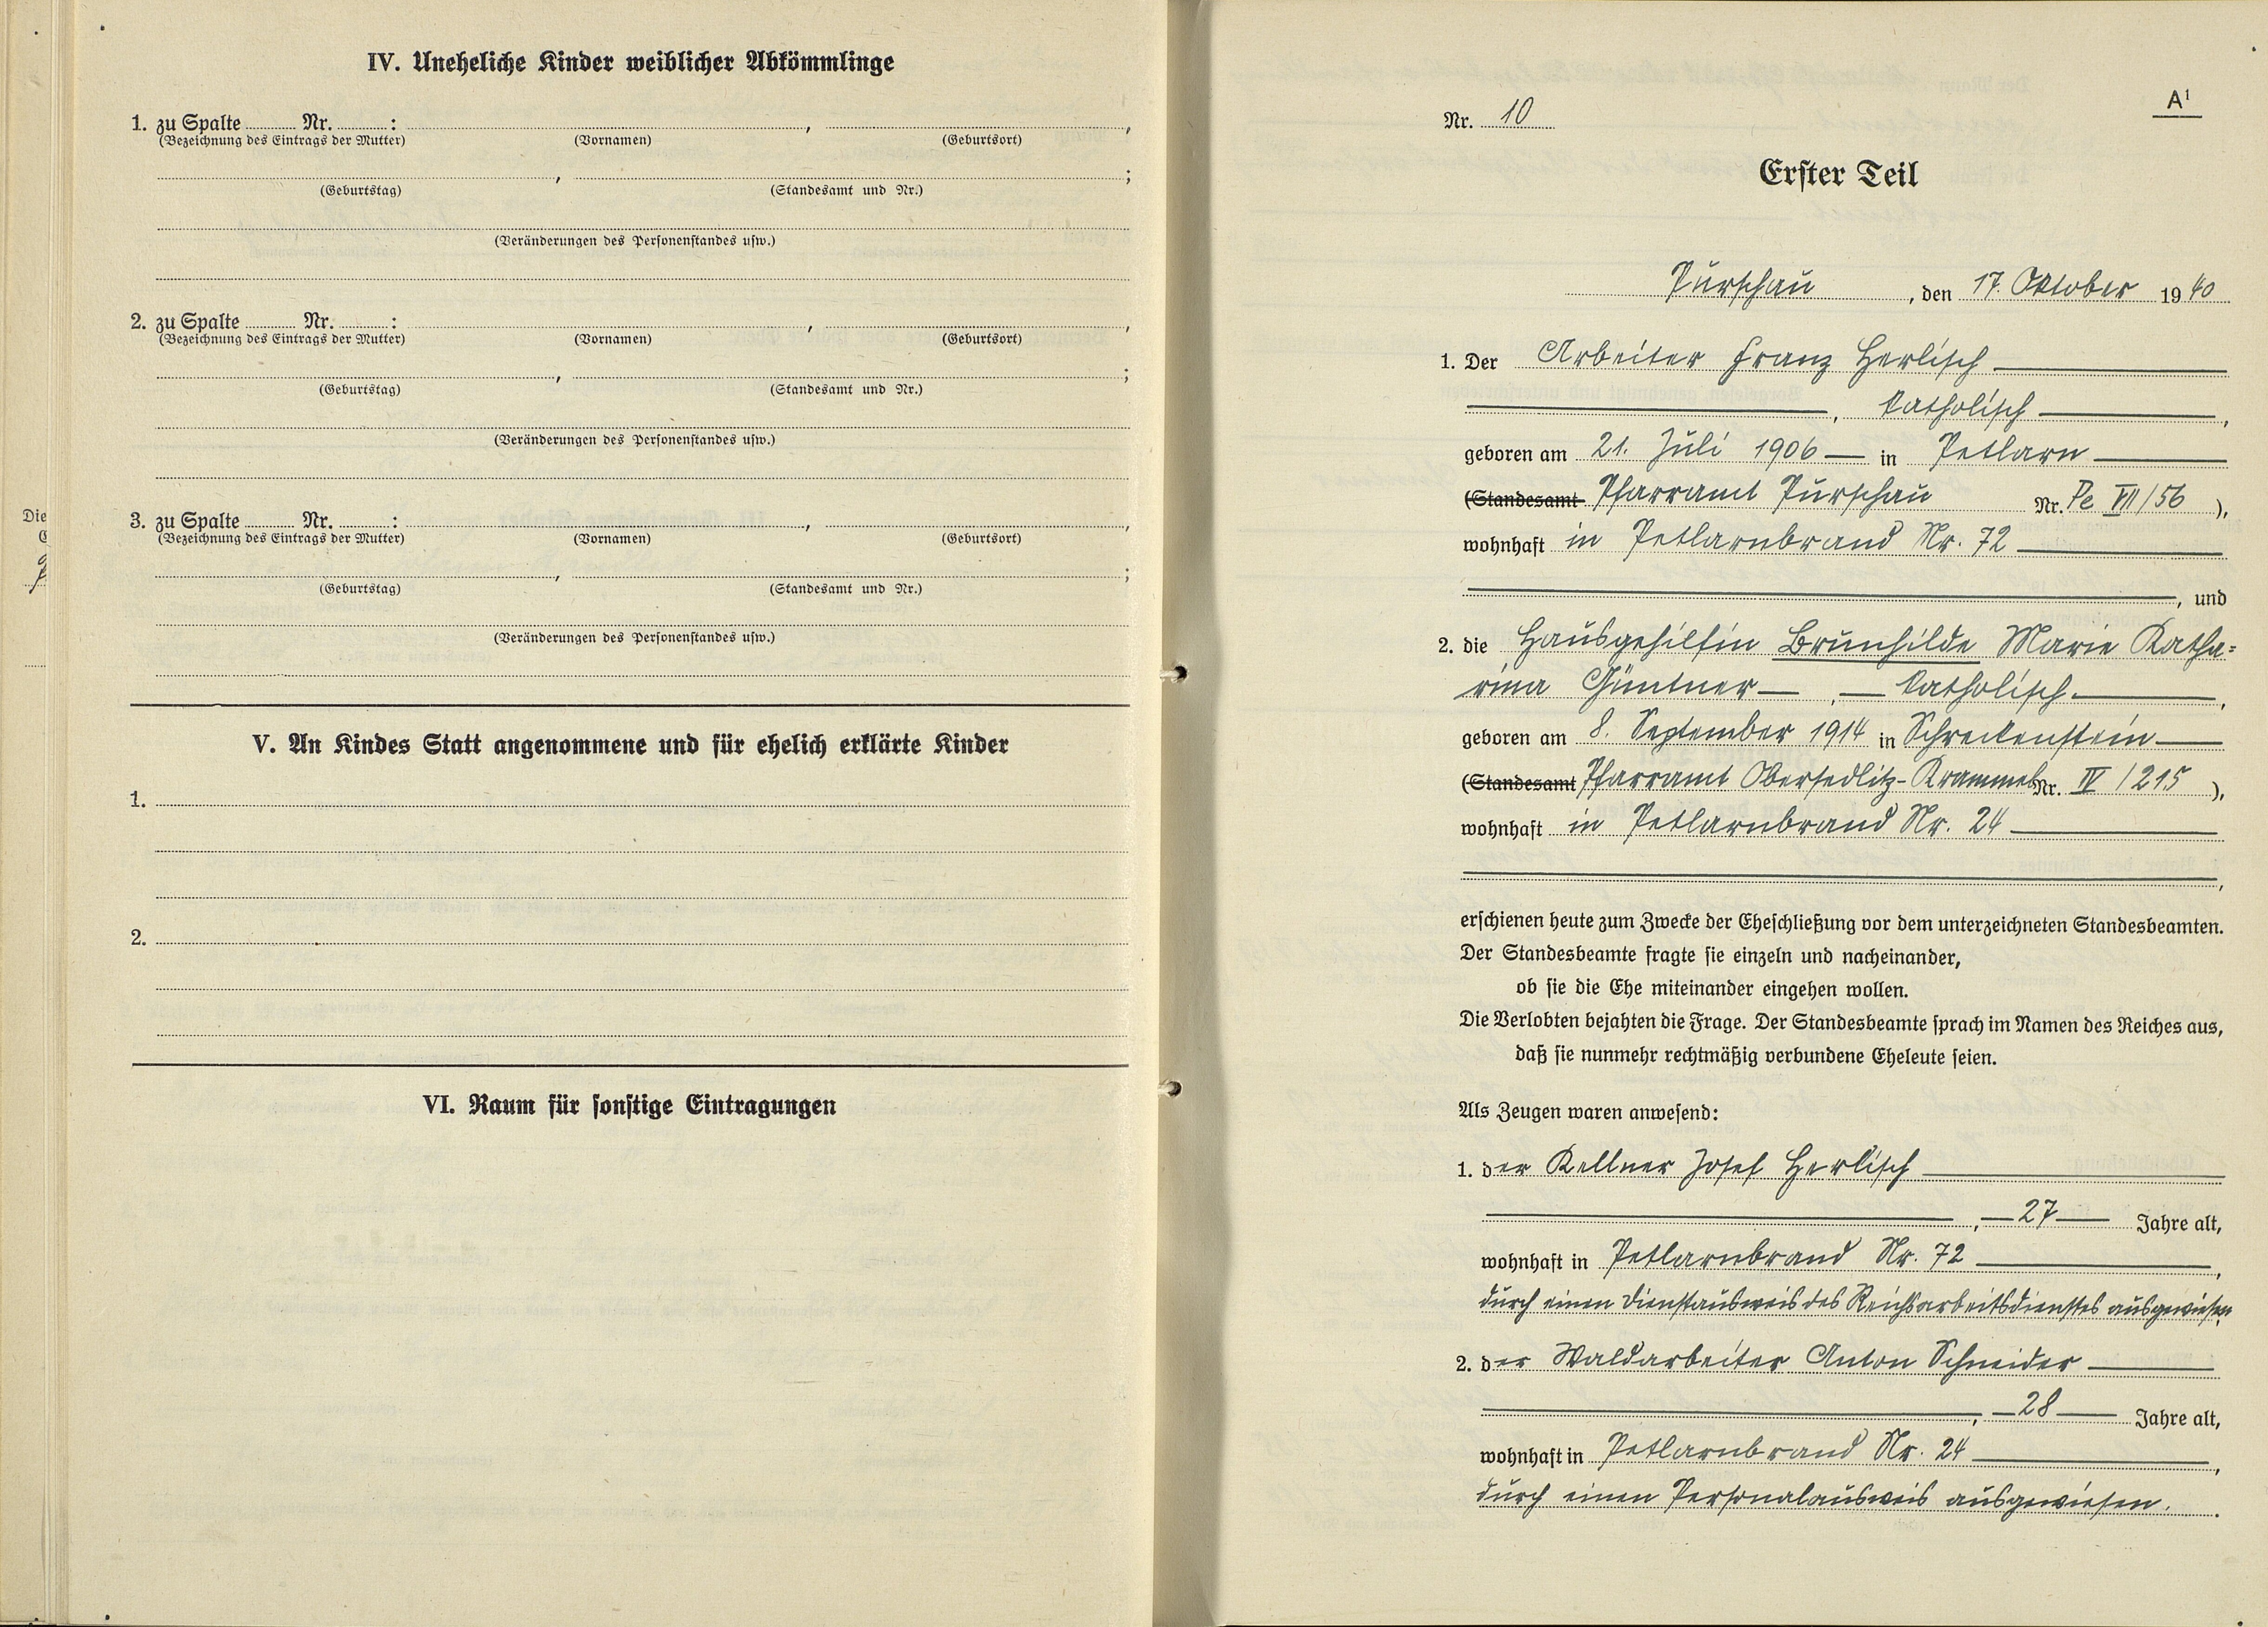 IV. Uneheliche Kinder weiblicher Abkömmlinge
1. zu Spalte ........ Nr. ........ : ........ , ........ ,
(Bezeichnung des Eintrags der Mutter) (Vornamen) (Geburtsort)
........ , ........ ;
(Geburtstag) (Standesamt und Nr.)
(Veränderungen des Personenstandes usw.)
2. zu Spalte ........ Nr. ........ : ........ , ........ ,
(Bezeichnung des Eintrags der Mutter) (Vornamen) (Geburtsort)
........ , ........ ;
(Geburtstag) (Standesamt und Nr.)
(Veränderungen des Personenstandes usw.)
3. zu Spalte ........ Nr. ........ : ........ , ........ ,
(Bezeichnung des Eintrags der Mutter) (Vornamen) (Geburtsort)
........ , ........ ;
(Geburtstag) (Standesamt und Nr.)
(Veränderungen des Personenstandes usw.)
V. An Kindes Statt angenommene und für ehelich erklärte Kinder
1.
2.
VI. Raum für sonstige Eintragungen
Die
A¹
Nr. 10
Erster Teil
Purschau, den 17. Oktober 1940
1. Der Arbeiter Franz Herlisch
, katholisch ,
geboren am 21. Juli 1906 in Petlarn
(Standesamt Pfarramt Purschau Nr. Pe VII/56 ),
wohnhaft in Petlarnbrand Nr. 72
, und
2. die Hausgehilfin Brunhilde Marie Katha=
rina Güntner , katholisch ,
geboren am 8. September 1914 in Schreckenstein
(Standesamt Pfarramt Obersedlitz-Krammel Nr. IV / 215 ),
wohnhaft in Petlarnbrand Nr. 24
,
erschienen heute zum Zwecke der Eheschließung vor dem unterzeichneten Standesbeamten.
Der Standesbeamte fragte sie einzeln und nacheinander,
ob sie die Ehe miteinander eingehen wollen.
Die Verlobten bejahten die Frage. Der Standesbeamte sprach im Namen des Reiches aus,
daß sie nunmehr rechtmäßig verbundene Eheleute seien.
Als Zeugen waren anwesend:
1. der Kellner Josef Herlisch
, 27 Jahre alt,
wohnhaft in Petlarnbrand Nr. 72 ,
durch einen Dienstausweis des Reichsarbeitsdienstes ausgewiesen.
2. der Waldarbeiter Anton Schneider
, 28 Jahre alt,
wohnhaft in Petlarnbrand Nr. 24 ,
durch einen Personalausweis ausgewiesen.